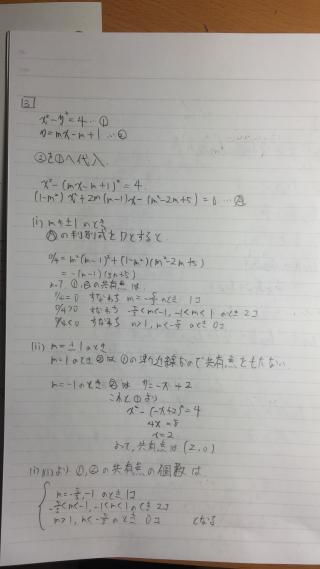 3
x²-y²=4 …①
y=mx-m+1 …②
②を①へ代入
x²-(mx-m+1)²=4
(1-m²)x²+2m(m-1)x-(m²-2m+5)=0 …Ⓐ
(i) m≠±1のとき
Ⓐの判別式をDとすると
D/4=m²(m-1)²+(1-m²)(m²-2m+5)
=-(m-1)(3m+5)
よって、①,②の共有点は
D/4=0 すなわち m=-5/3のとき 1コ
D/4>0 すなわち -5/3<m<-1, -1<m<1 のとき 2コ
D/4<0 すなわち m>1, m<-5/3 のとき 0コ
(ii) m=±1のとき
m=1のとき②は①の漸近線なので共有点をもたない
m=-1のとき②は y=-x+2
これと①より
x²-(-x+2)²=4
4x=8
x=2
よって、共有点は(2,0)
(i)(ii)より①,②の共有点の個数は
m=-5/3,-1 のとき 1コ
-5/3<m<-1, -1<m<1 のとき 2コ
m>1, m<-5/3 のとき 0コ となる